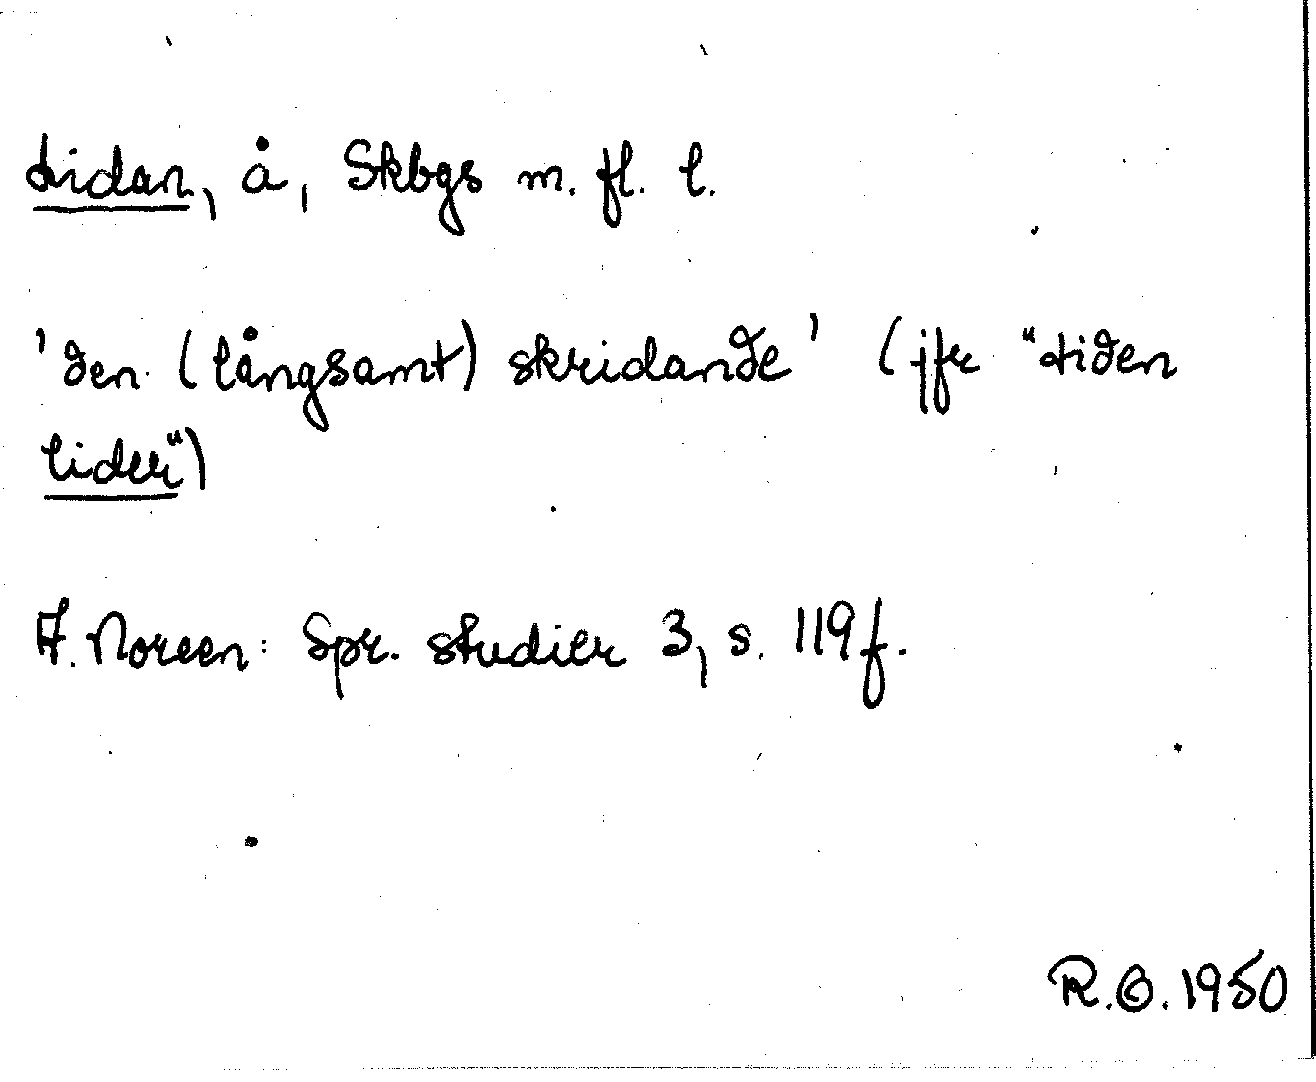 tidan, å, Skbgs m. fl. l.
'den (långsamt) skridande' (jfr "tiden
lider")
A. Noreen: Spr. studier 3, s. 119 f.
R.O. 1950